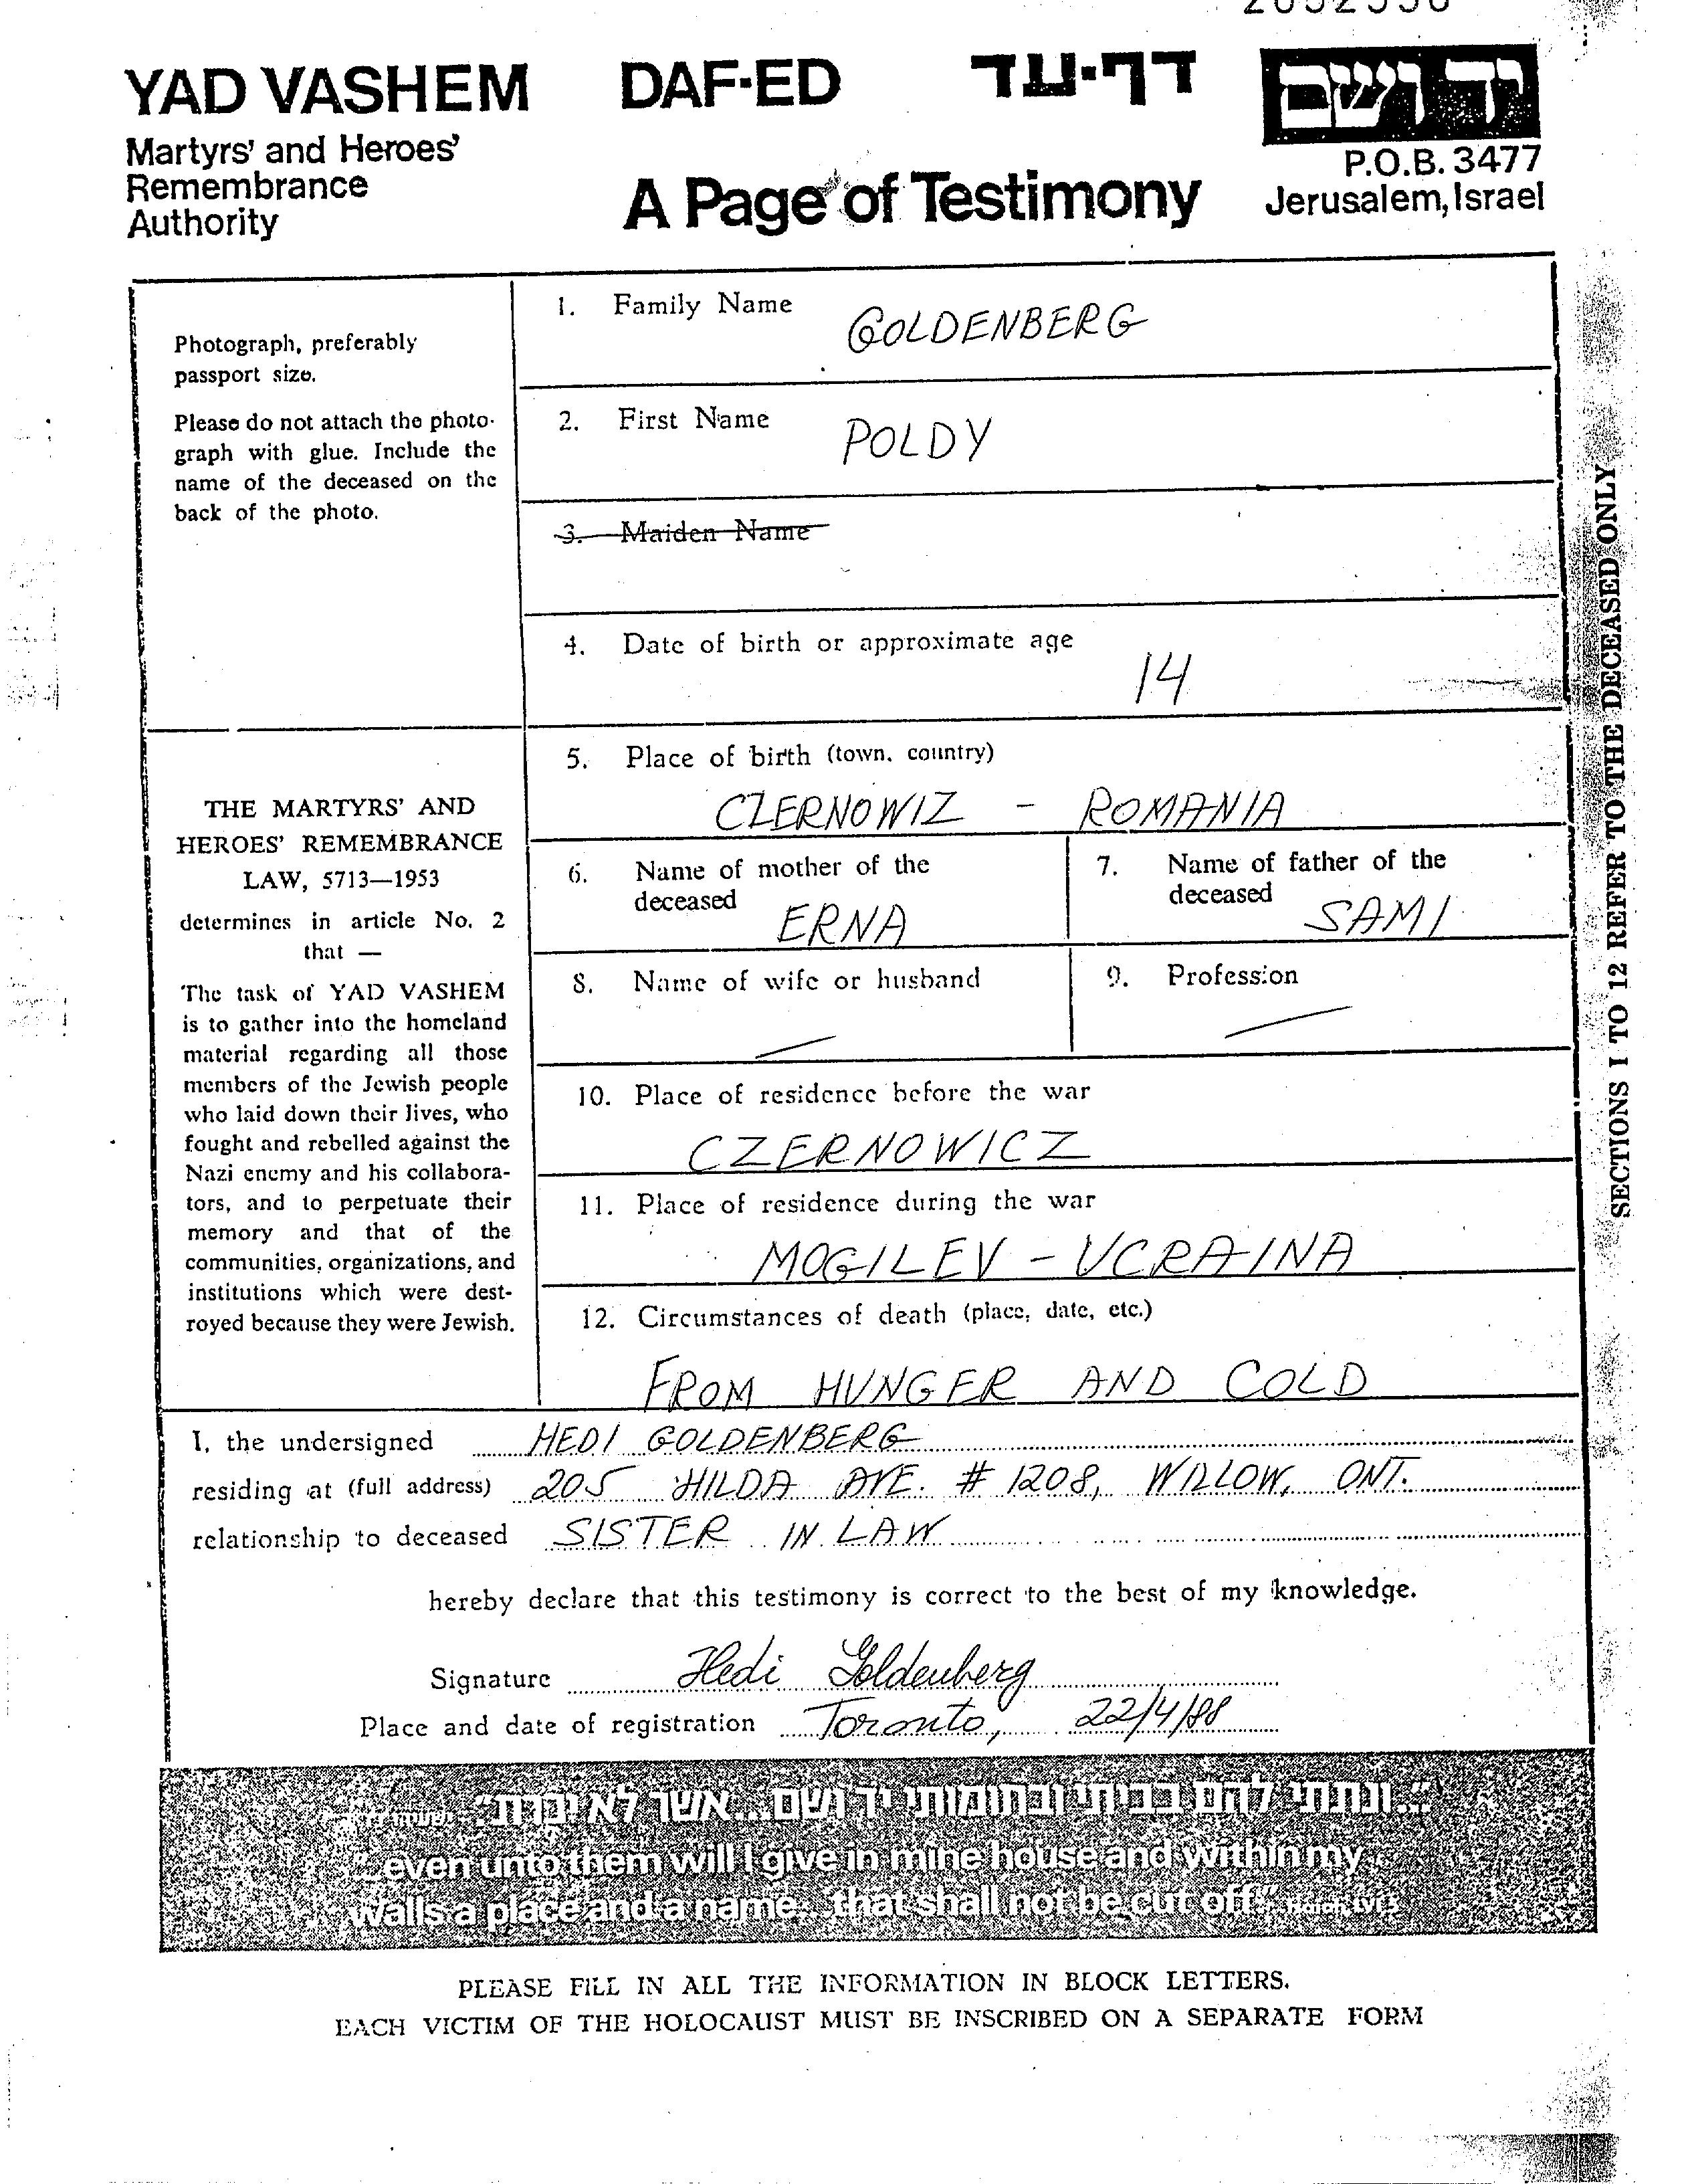 YAD VASHEM DAF-ED דף-עד ידושם
Martyrs' and Heroes'
Remembrance
Authority
A Page of Testimony
P.O.B. 3477
Jerusalem, Israel
Photograph, preferably
passport size.
Please do not attach the photo-
graph with glue. Include the
name of the deceased on the
back of the photo.
1. Family Name GOLDENBERG
2. First Name POLDY
3. Maiden Name
4. Date of birth or approximate age 14
THE MARTYRS' AND
HEROES' REMEMBRANCE
LAW, 5713—1953
determines in article No. 2
that —
The task of YAD VASHEM
is to gather into the homeland
material regarding all those
members of the Jewish people
who laid down their lives, who
fought and rebelled against the
Nazi enemy and his collabora-
tors, and to perpetuate their
memory and that of the
communities, organizations, and
institutions which were dest-
royed because they were Jewish.
5. Place of birth (town, country)
CZERNOWIZ - ROMANIA
6. Name of mother of the
deceased ERNA
7. Name of father of the
deceased SAMI
8. Name of wife or husband
—
9. Profession
—
10. Place of residence before the war
CZERNOWICZ
11. Place of residence during the war
MOGILEV - UCRAINA
12. Circumstances of death (place, date, etc.)
FROM HUNGER AND COLD
SECTIONS 1 TO 12 REFER TO THE DECEASED ONLY
I, the undersigned HEDI GOLDENBERG
residing at (full address) 205 HILDA AVE. # 1208, WILLOW, ONT.
relationship to deceased SISTER IN LAW
hereby declare that this testimony is correct to the best of my knowledge.
Signature Hedi Goldenberg
Place and date of registration Toronto, 22/4/88
"...ונתתי להם בביתי ובחומותי יד ושם...אשר לא יכרת".
"...even unto them will I give in mine house and within my
walls a place and a name...that shall not be cut off." Isaiah LVI 5
PLEASE FILL IN ALL THE INFORMATION IN BLOCK LETTERS.
EACH VICTIM OF THE HOLOCAUST MUST BE INSCRIBED ON A SEPARATE FORM